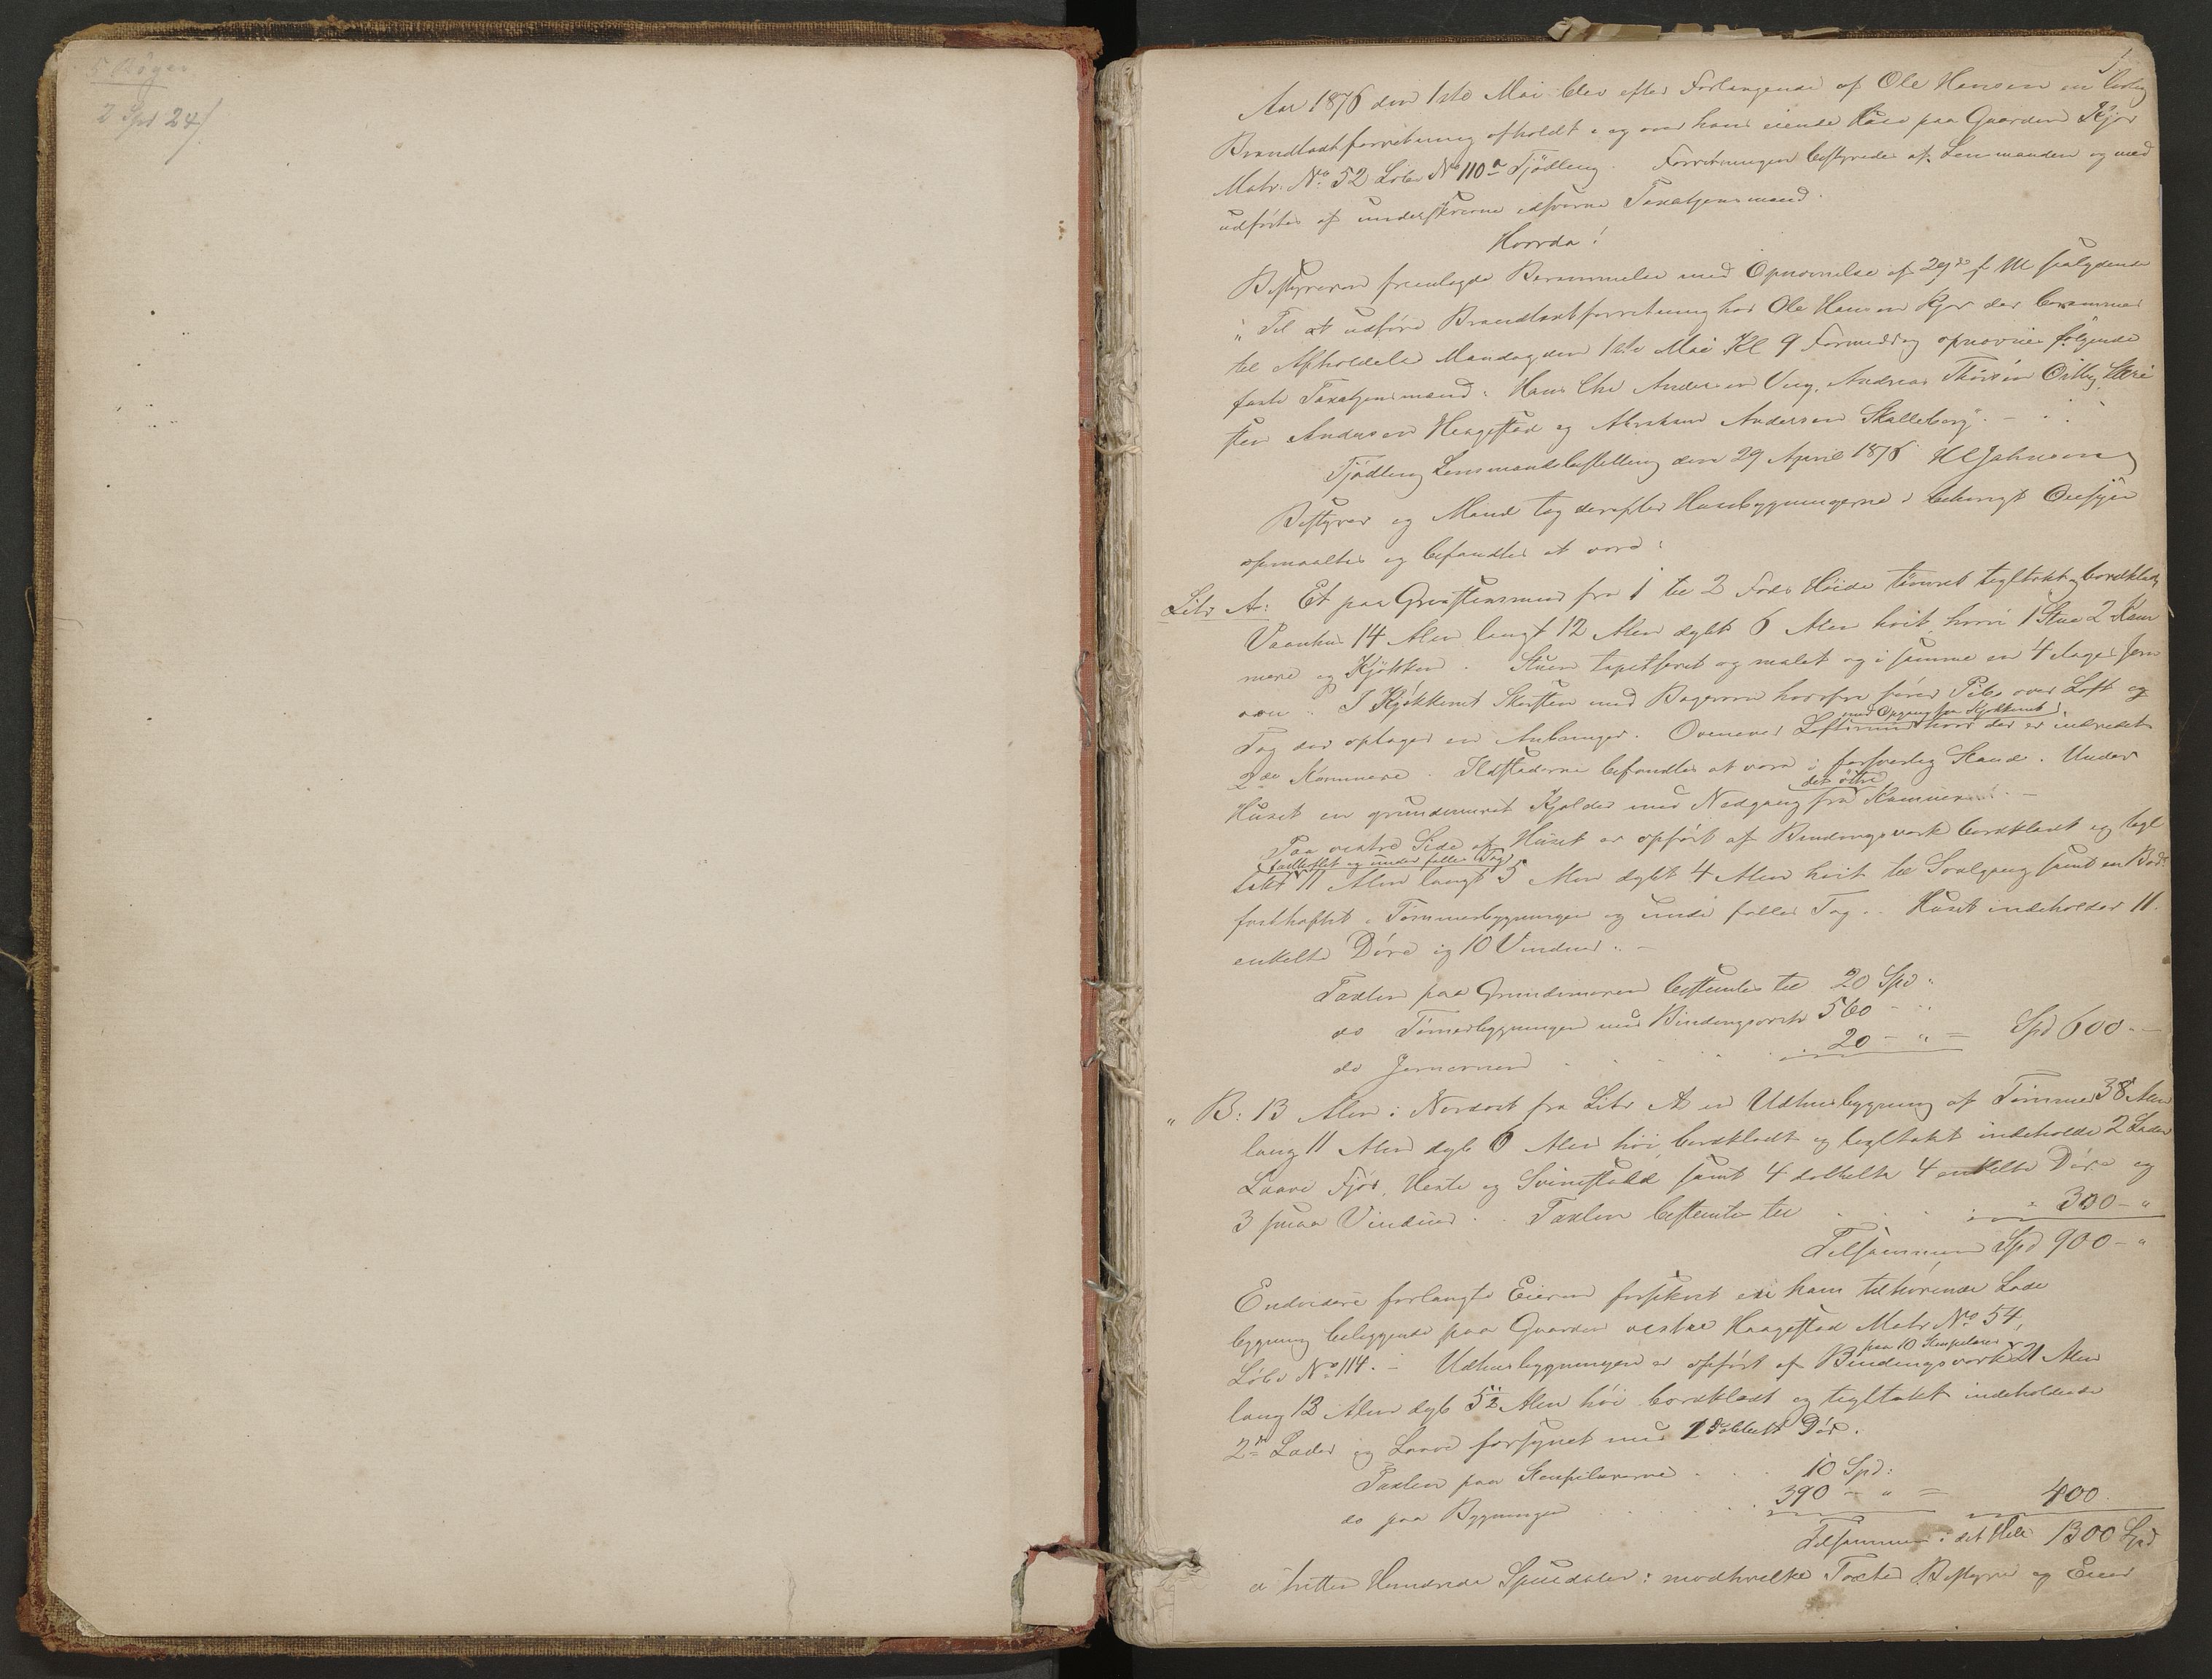 5 Bøger
2 Spd 24/
1.
Aar 1876 den 1ste Mai blev efter Forlangende af Ole Hansen en lovlig
Brandtaxtforretning afholdt i og over hans eiende Huse paa Gaarden Kjør
Matr. No 52 Løbe No 110a Tjødling. Forretningen bestyredes af Lensmanden og med
udførtes af underskrevne edsvorne Taxatjonsmænd.
Hvorda!
Bestyreren fremlagde Berammelse med Opnævnelse af 29de f M saalydende
"Til at udføre Brandtaxtforretning hos Ole Hansen Kjør der berammes
til Afholdelse Mandag den 1ste Mai Kl 9 Formiddag opnævnes følgende
faste Taxatjonsmænd: Hans Chr Andersen Andreas Thorsen Østby
sten Andersen Haagestad og Abraham Andersen Skalleberg". -
Tjødling Lensmandsbestilling den 29 April 1876 H C Johnsen
Bestyrer og Mænd tog derefter Husebygningerne i behørigt Øiesyn
opmaaltes og befandtes at være:
Litr A: Et paa Graastensmuur fra 1 til 2 Fods Høide tømret tegltakt bordklædt
Vaanhus 14 Alen langt 12 Alen dybt 6 Alen høit hvori 1 Stue 2 Kam
mere og Kjøkken. Stuen tapetseret og malet og i samme en 4 Etages Jern
ovn. I Kjøkkenet Skorsten med Bagerovn hvorfra fører Pibe over Loft og
med Opgang fra Kjøkkenet
Tag der optager en Anbringer. Ovenover Loftsrum hvor der er indredet
2de Kammere. Ildstederne befandtes at være i forsvarlig Stand. Under
det østre
Huset en grundmuret Kjelder med Nedgang fra Kammer. -
Paa vestre Side af Huset er opført af Bindingsverk bordklædt og tegl
fastheftet og under fælles Tag
takt 11 Alen langt 5 Alen dybt 4 Alen høit til Svalgang samt en Bod
fastheftet i Tømmerbygningen og under fælles Tag. Huset indeholder 11
enkelte Døre og 10 Vinduer. -
Taxten paa Grundmuren bestemtes til 20 Spd "
do Tømmerbygningen med Bindingsverk 560 - "
do Jernovnen 20 - " = Spd 600 - "
" B: 13 Alen i Nordost fra Litr A en Udhusbygning af Tømmer 38 Alen
lang 11 Alen dyb 6 Alen høi bordklædt og tegltakt indeholder 2 Lader
Laave Fjøs, Heste og Svinestald samt 4 dobbelte 4 enkelte Døre og
3 smaa Vinduer. Taxten bestemtes til 300 - "
Tilsammen Spd 900 - "
Endvidere forlangte Eieren forsikret en ham tilhørende Lade
bygning beliggende paa Gaarden vestre Haagestad Matr No 54,
paa 10 Stenpilarer
Løbe No 114. - Udhusbygningen er opført af Bindingsverk 21 Alen
lang 13 Alen dyb 5½ Alen høi bordklædt og tegltakt indeholdende
2de Lader og Laave forsynet med 1 dobbelt Dør.
Taxten paa Stenpilarerne 10 Spd:
do paa Bygningen 390 - " = 400
Tilsammen i det Hele 1300 Spd
er tretten Hundrede Speciedaler: mod hvilke Taxter Bestyrer og Eier